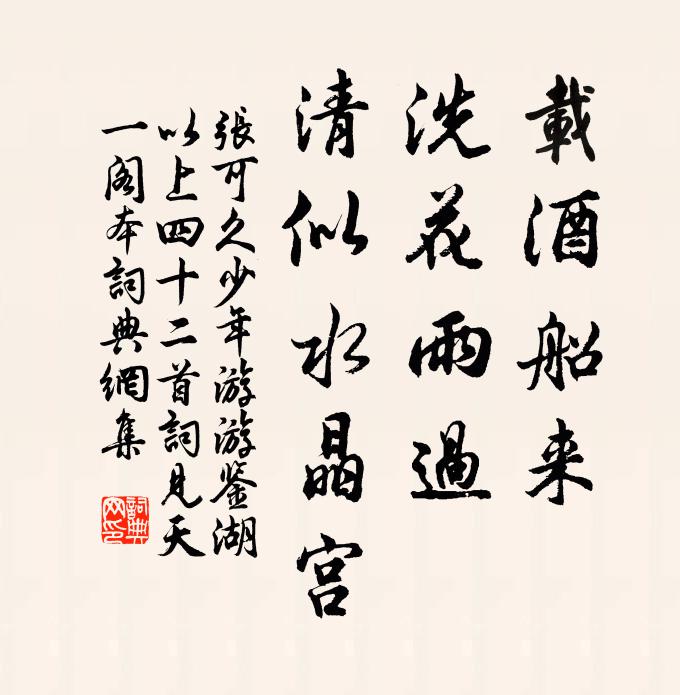 載酒船来
洗花雨過
清似水晶宫
張可久少年游游鉴湖
以上四十二首詞見天
一阁本詞典網集
詞典
网印